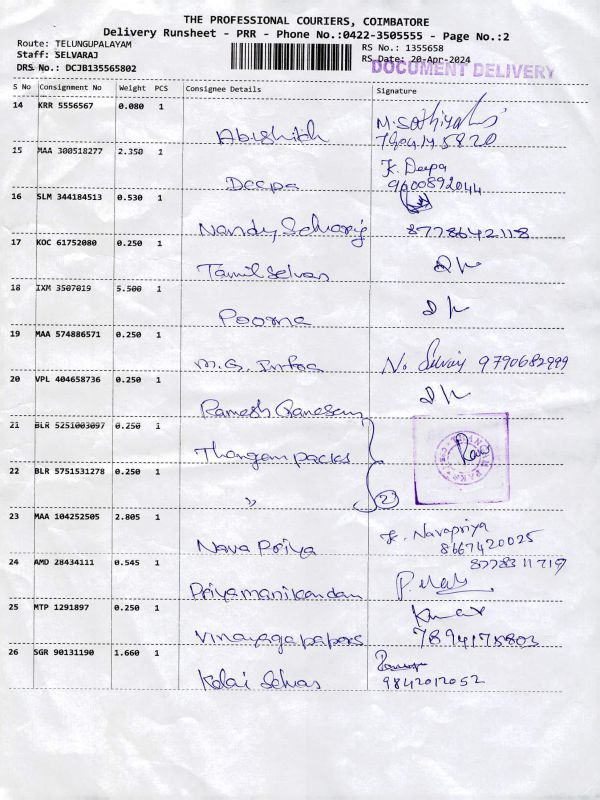 THE PROFESSIONAL COURIERS, COIMBATORE
Delivery Runsheet - PRR - Phone No.:0422-3505555 - Page No.:2
Route: TELUNGUPALAYAM
Staff: SELVARAJ
DRS No.: DCJB135565802
RS No.: 1355658
RS Date: 20-Apr-2024
DOCUMENT DELIVERY
S No Consignment No Weight PCS Consignee Details Signature
14 KRR 5556567 0.080 1
Abishikh M. Sathiya
15 MAA 300518277 2.350 1
K. Deepa
Deepa 9600892044
16 SLM 344184513 0.530 1
Nandy Selvaraj 8778642118
17 KOC 61752080 0.250 1
Tamil Selvan
18 IXM 3507019 5.500 1
Poorna
19 MAA 574886571 0.250 1
M.G. Infos No Selvaraj 9790682999
20 VPL 404658736 0.250 1
Ramesh Ganesan
21 BLR 5251003097 0.250 1
Thangam packs
22 BLR 5751531278 0.250 1
" 2
23 MAA 104252505 2.805 1
K. Navapriya
Nava Priya 8667420025
24 AMD 28434111 0.545 1
Priyamanikandan
25 MTP 1291897 0.250 1
Kumar
Vinayaga papers
26 SGR 90131190 1.660 1
Kalai Selvan 9842012052